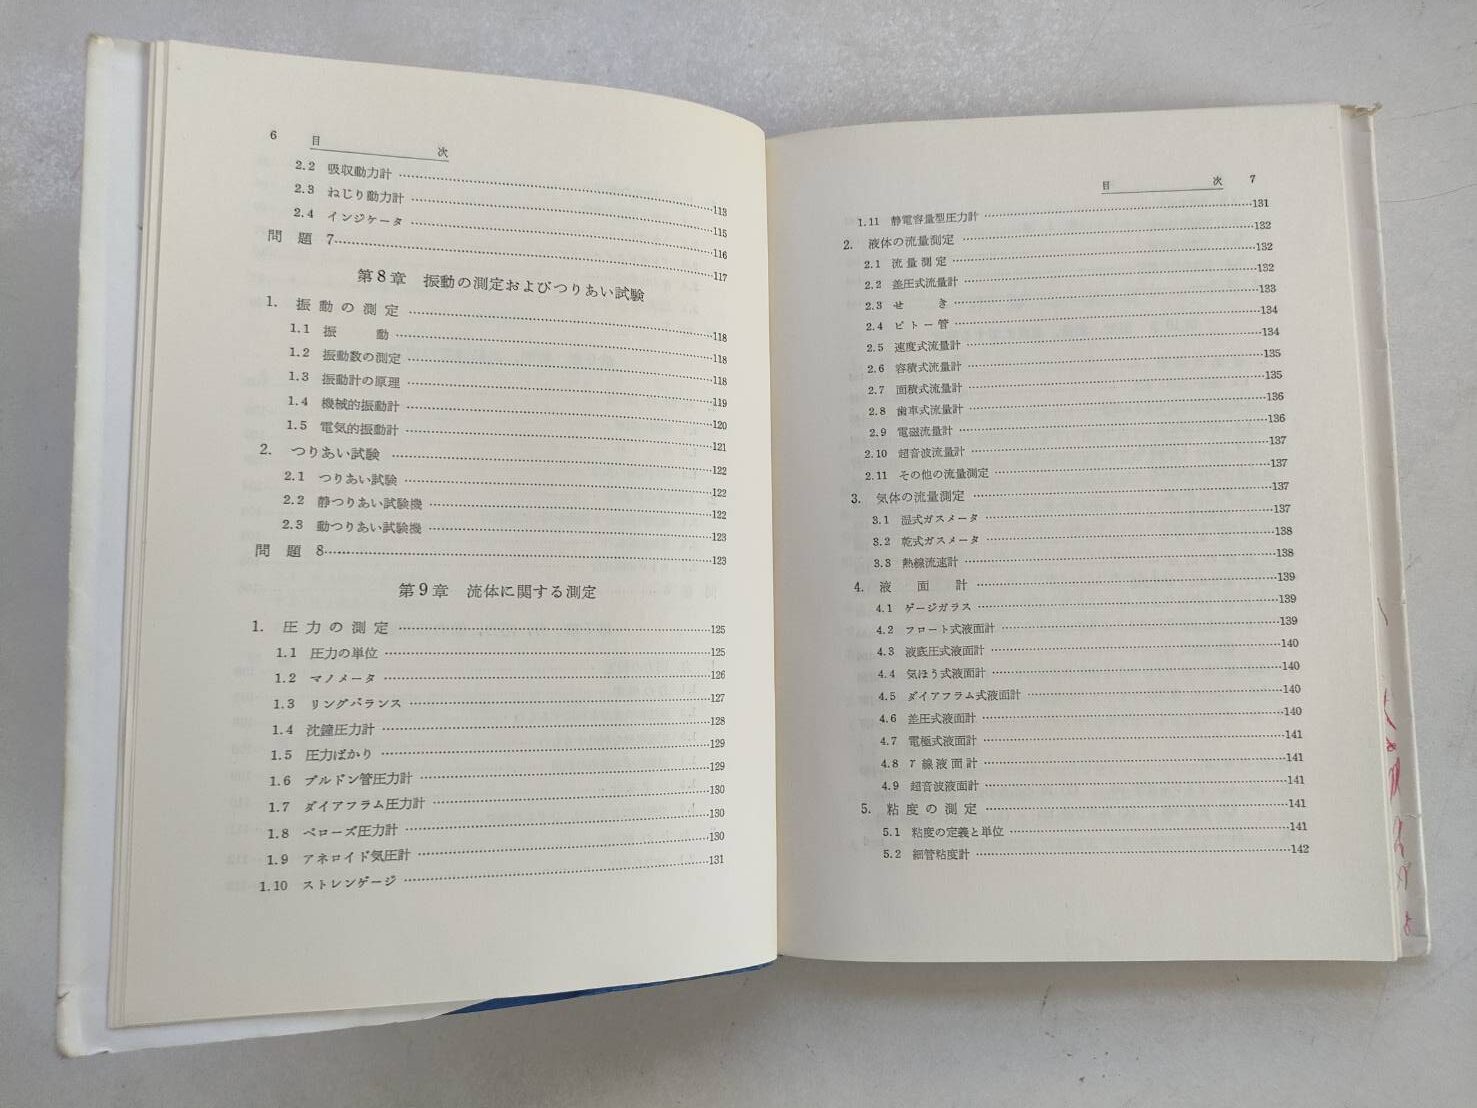 6 目次
2.2 吸収動力計 113
2.3 ねじり動力計 115
2.4 インジケータ 116
問題 7 117
第8章 振動の測定およびつりあい試験
1. 振動の測定 118
1.1 振動 118
1.2 振動数の測定 118
1.3 振動計の原理 119
1.4 機械的振動計 120
1.5 電気的振動計 121
2. つりあい試験 122
2.1 つりあい試験 122
2.2 静つりあい試験機 122
2.3 動つりあい試験機 123
問題 8 123
第9章 流体に関する測定
1. 圧力の測定 125
1.1 圧力の単位 125
1.2 マノメータ 126
1.3 リングバランス 127
1.4 沈鐘圧力計 128
1.5 圧力ばかり 129
1.6 ブルドン管圧力計 129
1.7 ダイアフラム圧力計 130
1.8 ベローズ圧力計 130
1.9 アネロイド気圧計 130
1.10 ストレンゲージ 131
目次 7
1.11 静電容量型圧力計 131
2. 液体の流量測定 132
2.1 流量測定 132
2.2 差圧式流量計 132
2.3 せき 133
2.4 ピトー管 134
2.5 速度式流量計 134
2.6 容積式流量計 135
2.7 面積式流量計 135
2.8 歯車式流量計 136
2.9 電磁流量計 136
2.10 超音波流量計 137
2.11 その他の流量測定 137
3. 気体の流量測定 137
3.1 湿式ガスメータ 137
3.2 乾式ガスメータ 138
3.3 熱線流速計 138
4. 液面計 139
4.1 ゲージガラス 139
4.2 フロート式液面計 139
4.3 液底圧式液面計 140
4.4 気ほう式液面計 140
4.5 ダイアフラム式液面計 140
4.6 差圧式液面計 140
4.7 電極式液面計 141
4.8 γ線液面計 141
4.9 超音波液面計 141
5. 粘度の測定 141
5.1 粘度の定義と単位 141
5.2 細管粘度計 142